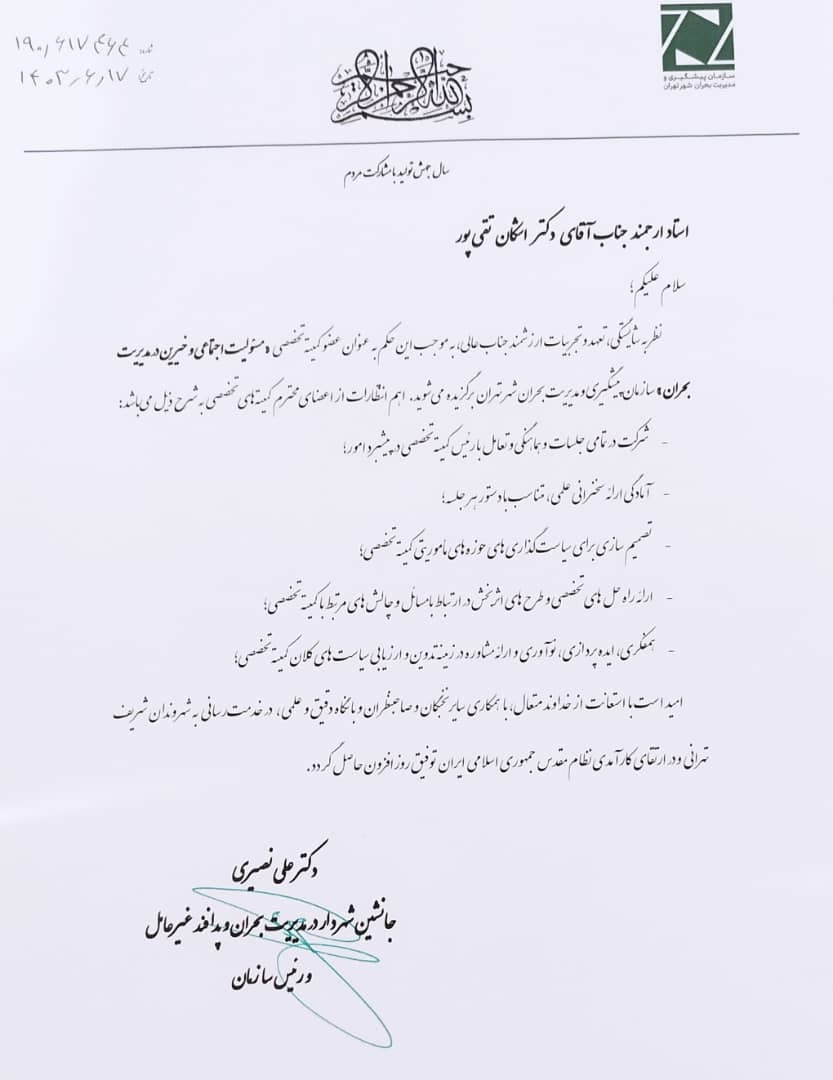 سازمان پیشگیری و
مدیریت بحران شهر تهران
شماره ۱۹۰/۶۱۷۴۶۴
تاریخ ۱۴۰۳/۶/۱۷
بسم الله الرحمن الرحیم
سال جهش تولید با مشارکت مردم
استاد ارجمند جناب آقای دکتر اشکان تقی پور
سلام علیکم؛
نظر به شایستگی، تعهد و تجربیات ارزشمند جناب عالی، به موجب این حکم به عنوان عضو کمیته تخصصی «مسئولیت اجتماعی و خیرین در مدیریت
بحران» سازمان پیشگیری و مدیریت بحران شهر تهران برگزیده می شوید. اهم انتظارات از اعضای محترم کمیته های تخصصی به شرح ذیل می باشد:
- شرکت در تمامی جلسات و هماهنگی و تعامل با رئیس کمیته تخصصی در پیشبرد امور؛
- آمادگی ارائه سخنرانی علمی، متناسب با دستور هر جلسه؛
- تصمیم سازی برای سیاست گذاری های حوزه های مأموریتی کمیته تخصصی؛
- ارائه راه حل های تخصصی و طرح های اثربخش در ارتباط با مسائل و چالش های مرتبط با کمیته تخصصی؛
- همفکری، ایده پردازی، نوآوری و ارائه مشاوره در زمینه تدوین و ارزیابی سیاست های کلان کمیته تخصصی؛
امید است با استعانت از خداوند متعال، با همکاری سایر نخبگان و صاحبنظران و با نگاه دقیق و علمی، در خدمت رسانی به شهروندان شریف
تهرانی و در ارتقای کارآمدی نظام مقدس جمهوری اسلامی ایران توفیق روزافزون حاصل گردد.
دکتر علی نصیری
جانشین شهردار در مدیریت بحران و پدافند غیرعامل
و رئیس سازمان